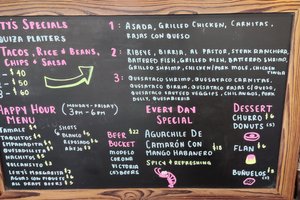 TY'S SPECIALS
QUIZA PLATTERS
TACOS, RICE & BEANS,
CHIPS & SALSA
$40
$50
$60
1: ASADA, GRILLED CHICKEN, CARNITAS,
RAJAS CON QUESO
2: RIBEYE, BIRRIA, AL PASTOR, STEAK RANCHERA,
BATTERED FISH, GRILLED FISH, BATTERED SHRIMP,
GRILLED SHRIMP, CHICKEN/PORK MOLE, CHICKEN
TINGA
3: QUESATACO SHRIMP, QUESATACO CARNITAS,
QUESATACO BIRRIA, QUESATACO RAJAS C/QUESO,
QUESATACO SAUTEED VEGGIES, CHILANGO, PORK
BELLY, QUESABIRRIA
HAPPY HOUR
MENU
(MONDAY-FRIDAY)
3PM - 6PM
TAMALE
TAQUITOS
EMPANADITA
QUESADILLITA
NACHITOS
CHELADAS
LIZ'S MARGARITA
AGUAS CON PIQUETE
ALL DRAFT BEERS
SHOTS
BLANCO
REPOSADO
AÑEJO
BEER $22
BUCKET
MODELO
CORONA
VICTORIA
(5) BEERS
EVERY DAY
SPECIAL
AGUACHILE DE
CAMARÓN CON
MANGO HABANERO
SPICY & REFRESHING
DESSERT
CHURRO
DONUTS
FLAN
BUÑUELOS